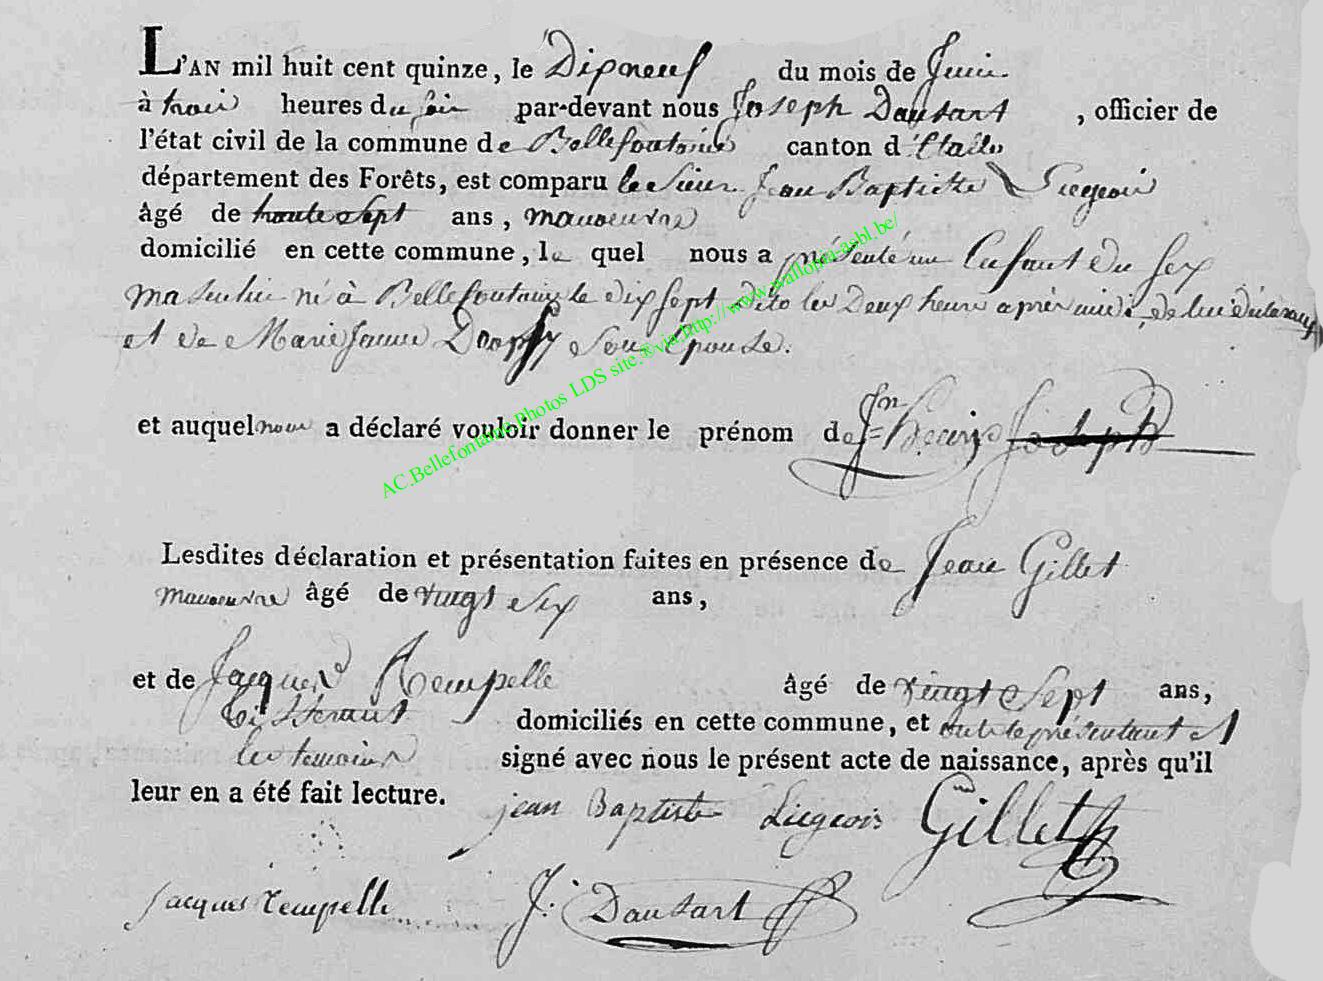 L'AN mil huit cent quinze, le Dixneuf du mois de Juin
à trois heures du soir par-devant nous Joseph Dausart, officier de
l'état civil de la commune de Bellefontaine canton d'Etalle
département des Forêts, est comparu le Sieur Jean Baptiste Liegeois
âgé de trente sept ans, manoeuvre
domicilié en cette commune, le quel nous a présenté un Enfant du sex
masculin né à Bellefontaine le dix sept dito les Deux heure après midi, de lui déclarant
et de Marie Jeanne son Epouse.
et auquel nous a déclaré vouloir donner le prénom de Jn = Henry Joseph
Lesdites déclaration et présentation faites en présence de Jean Gillet
manoeuvre âgé de vingt six ans,
et de Jacques Rempelle âgé de vingt sept ans,
tisserant domiciliés en cette commune, et ont le présentant et
les temoins signé avec nous le présent acte de naissance, après qu'il
leur en a été fait lecture.
jean Baptiste Liegeois Gillet
Jacques rempelle J. Dausart
AC.Bellefontaine.Photos LDS site.®via:http://www.wallonia-asbl.be/